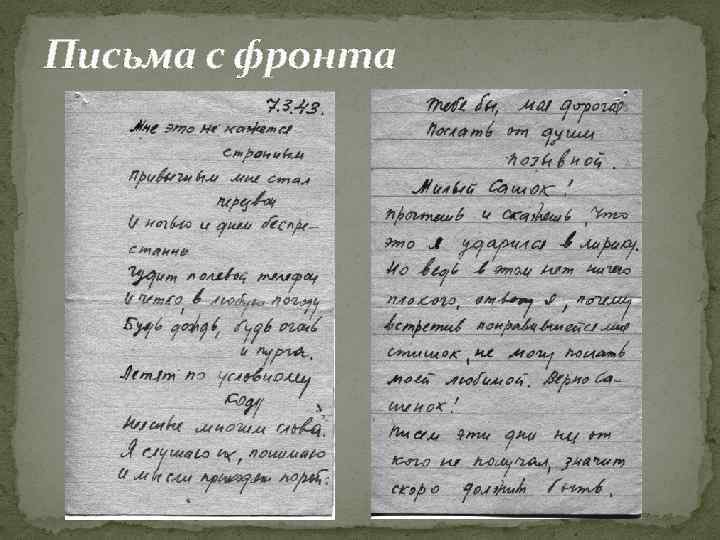 Письма с фронта
7.3.43.
Мне это не кажется
странным
Привычным мне стал
перезвон
И ночью и днем беспре-
станно
Гудит полевой телефон
И четко, в любую погоду
Будь дождь, будь огонь
и пурга.
Летят по условному
коду
Неясные многим слова.
Я слушаю их, понимаю
И мысли приходят порой:
Тебе бы, моя дорогая
Послать от души
позывной.
Милый Сашок!
Прочтешь и скажешь, что
это я ударился в лирику.
Но ведь в этом нет ничего
плохого, отвечу я, почему
встретив понравившийся мне
стишок, не могу послать
моей любимой. Верно Са-
шенок?
Писем эти дни ни от
кого не получал, значит
скоро должны быть.